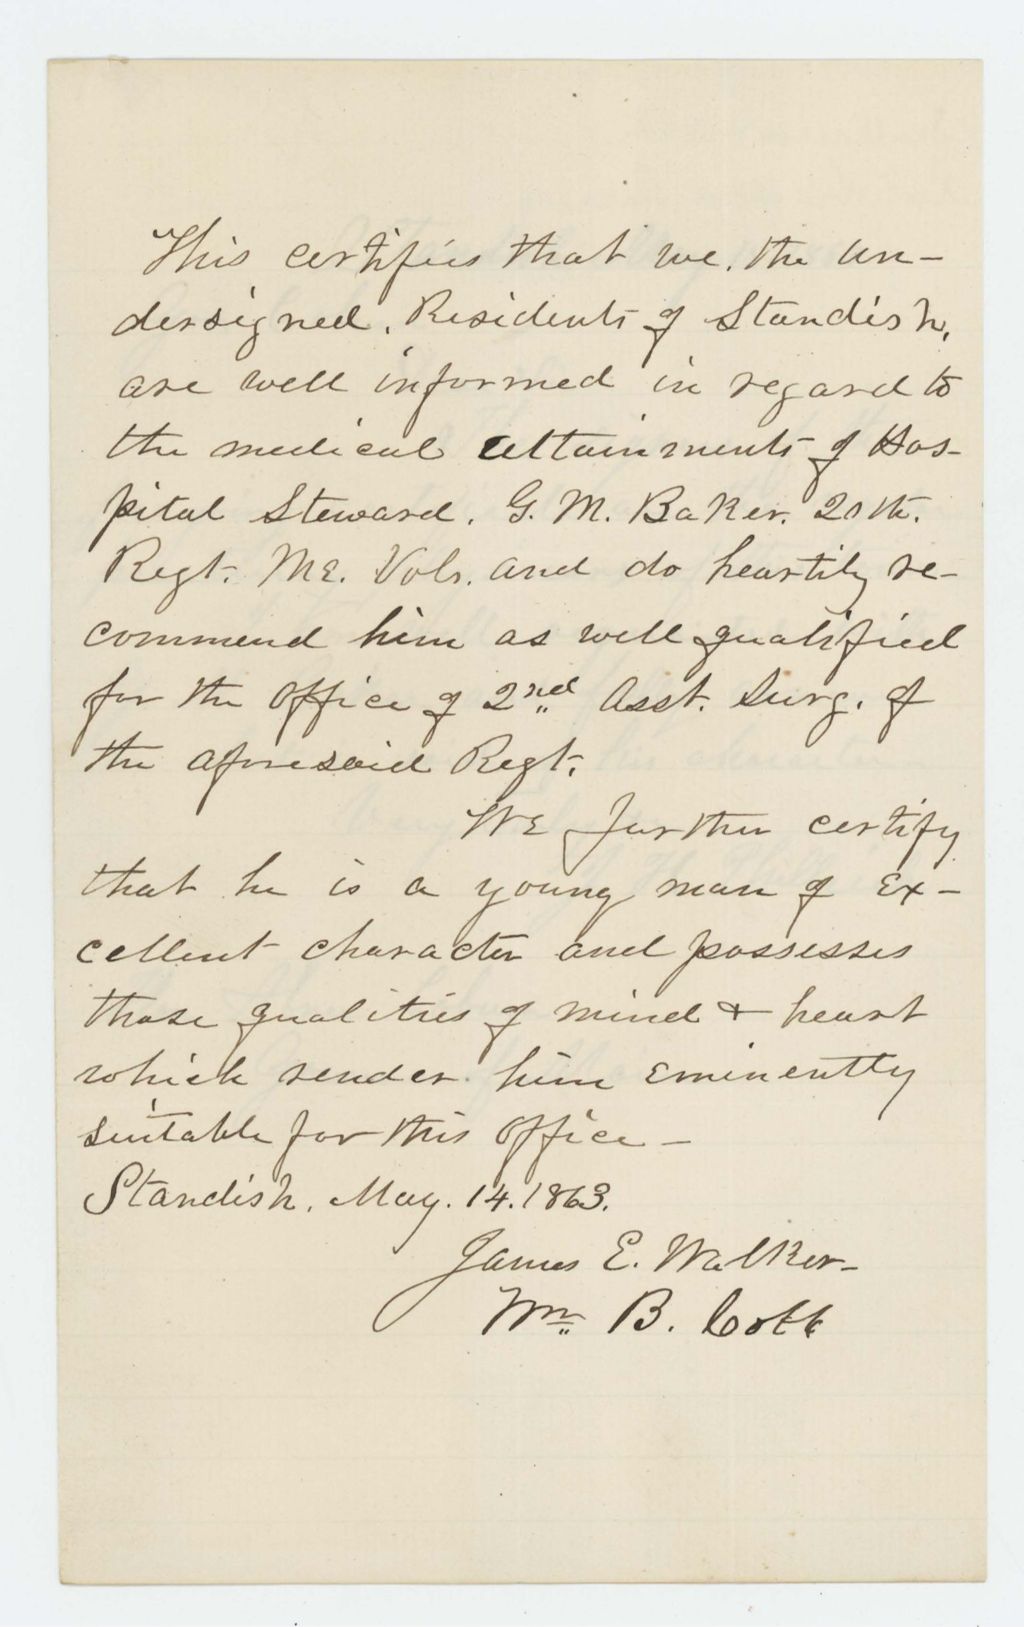 This certifies that we, the un-
dersigned, Residents of Standish,
are well informed in regard to
the medical attainments of Hos-
pital Steward, G. M. Baker, 20th.
Regt. ME. Vols. and do heartily re-
commend him as well qualified
for the office of 2nd Asst. Surg. of
the aforesaid Regt.
We further certify
that he is a young man of Ex-
cellent character and possesses
those qualities of mind & heart
which render him Eminently
suitable for this office -
Standish, May. 14. 1863.
James E. Walker -
Wm B. Cobb